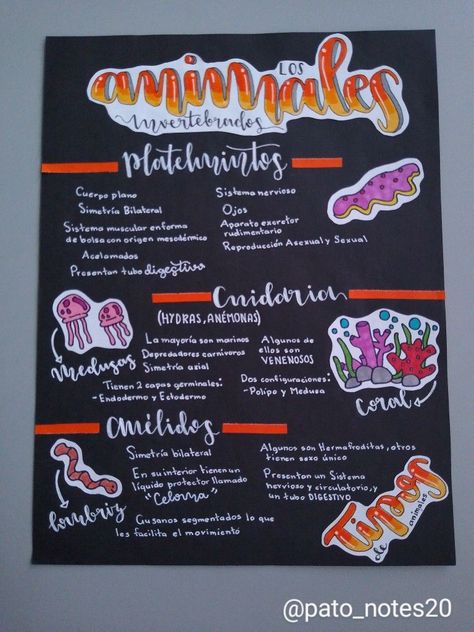 LOS
animales
invertebrados
Platelmintos
Cuerpo plano
Simetría Bilateral
Sistema muscular en forma
de bolsa con origen mesodérmico
Acelomados
Presentan tubo digestivo
Sistema nervioso
Ojos
Aparato excretor
rudimentario
Reproducción Asexual y Sexual
Cnidaria
(HYDRAS, ANÉMONAS)
Medusas
La mayoría son marinos
Depredadores carnívoros
Simetría axial
Tienen 2 capas germinales:
-Endodermo y Ectodermo
Algunos de
ellos son
VENENOSOS
Dos configuraciones:
-Polipo y Medusa
Coral
Anélidos
lombriz
Simetría bilateral
En su interior tienen un
líquido protector llamado
"Celoma"
Gusanos segmentados lo que
les facilita el movimiento
Algunos son Hermafroditas, otros
tienen sexo único
Presentan un Sistema
nervioso y circulatorio, y
un tubo DIGESTIVO
Tipos
de
animales
@pato_notes20